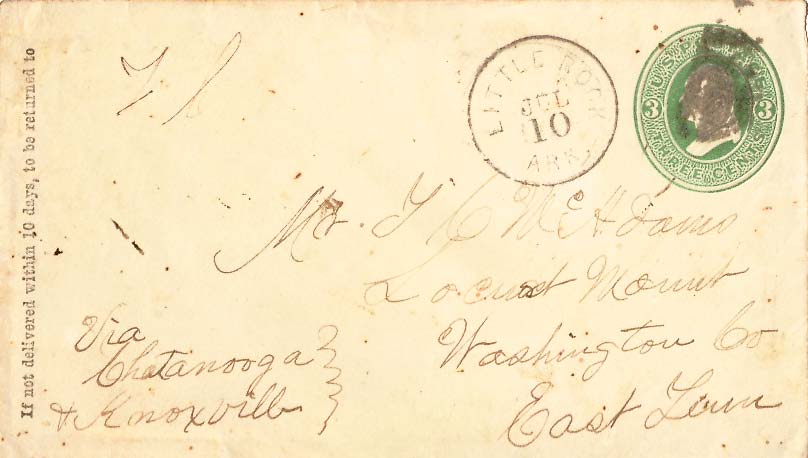 If not delivered within 10 days, to be returned to
LITTLE ROCK
JUL
10
ARK.
U.S. POSTAGE
3 3
THREE CENTS
Mr. T C McAdams
Locust Mount
Washington Co
East Tenn
Via
Chatanooga
& Knoxville